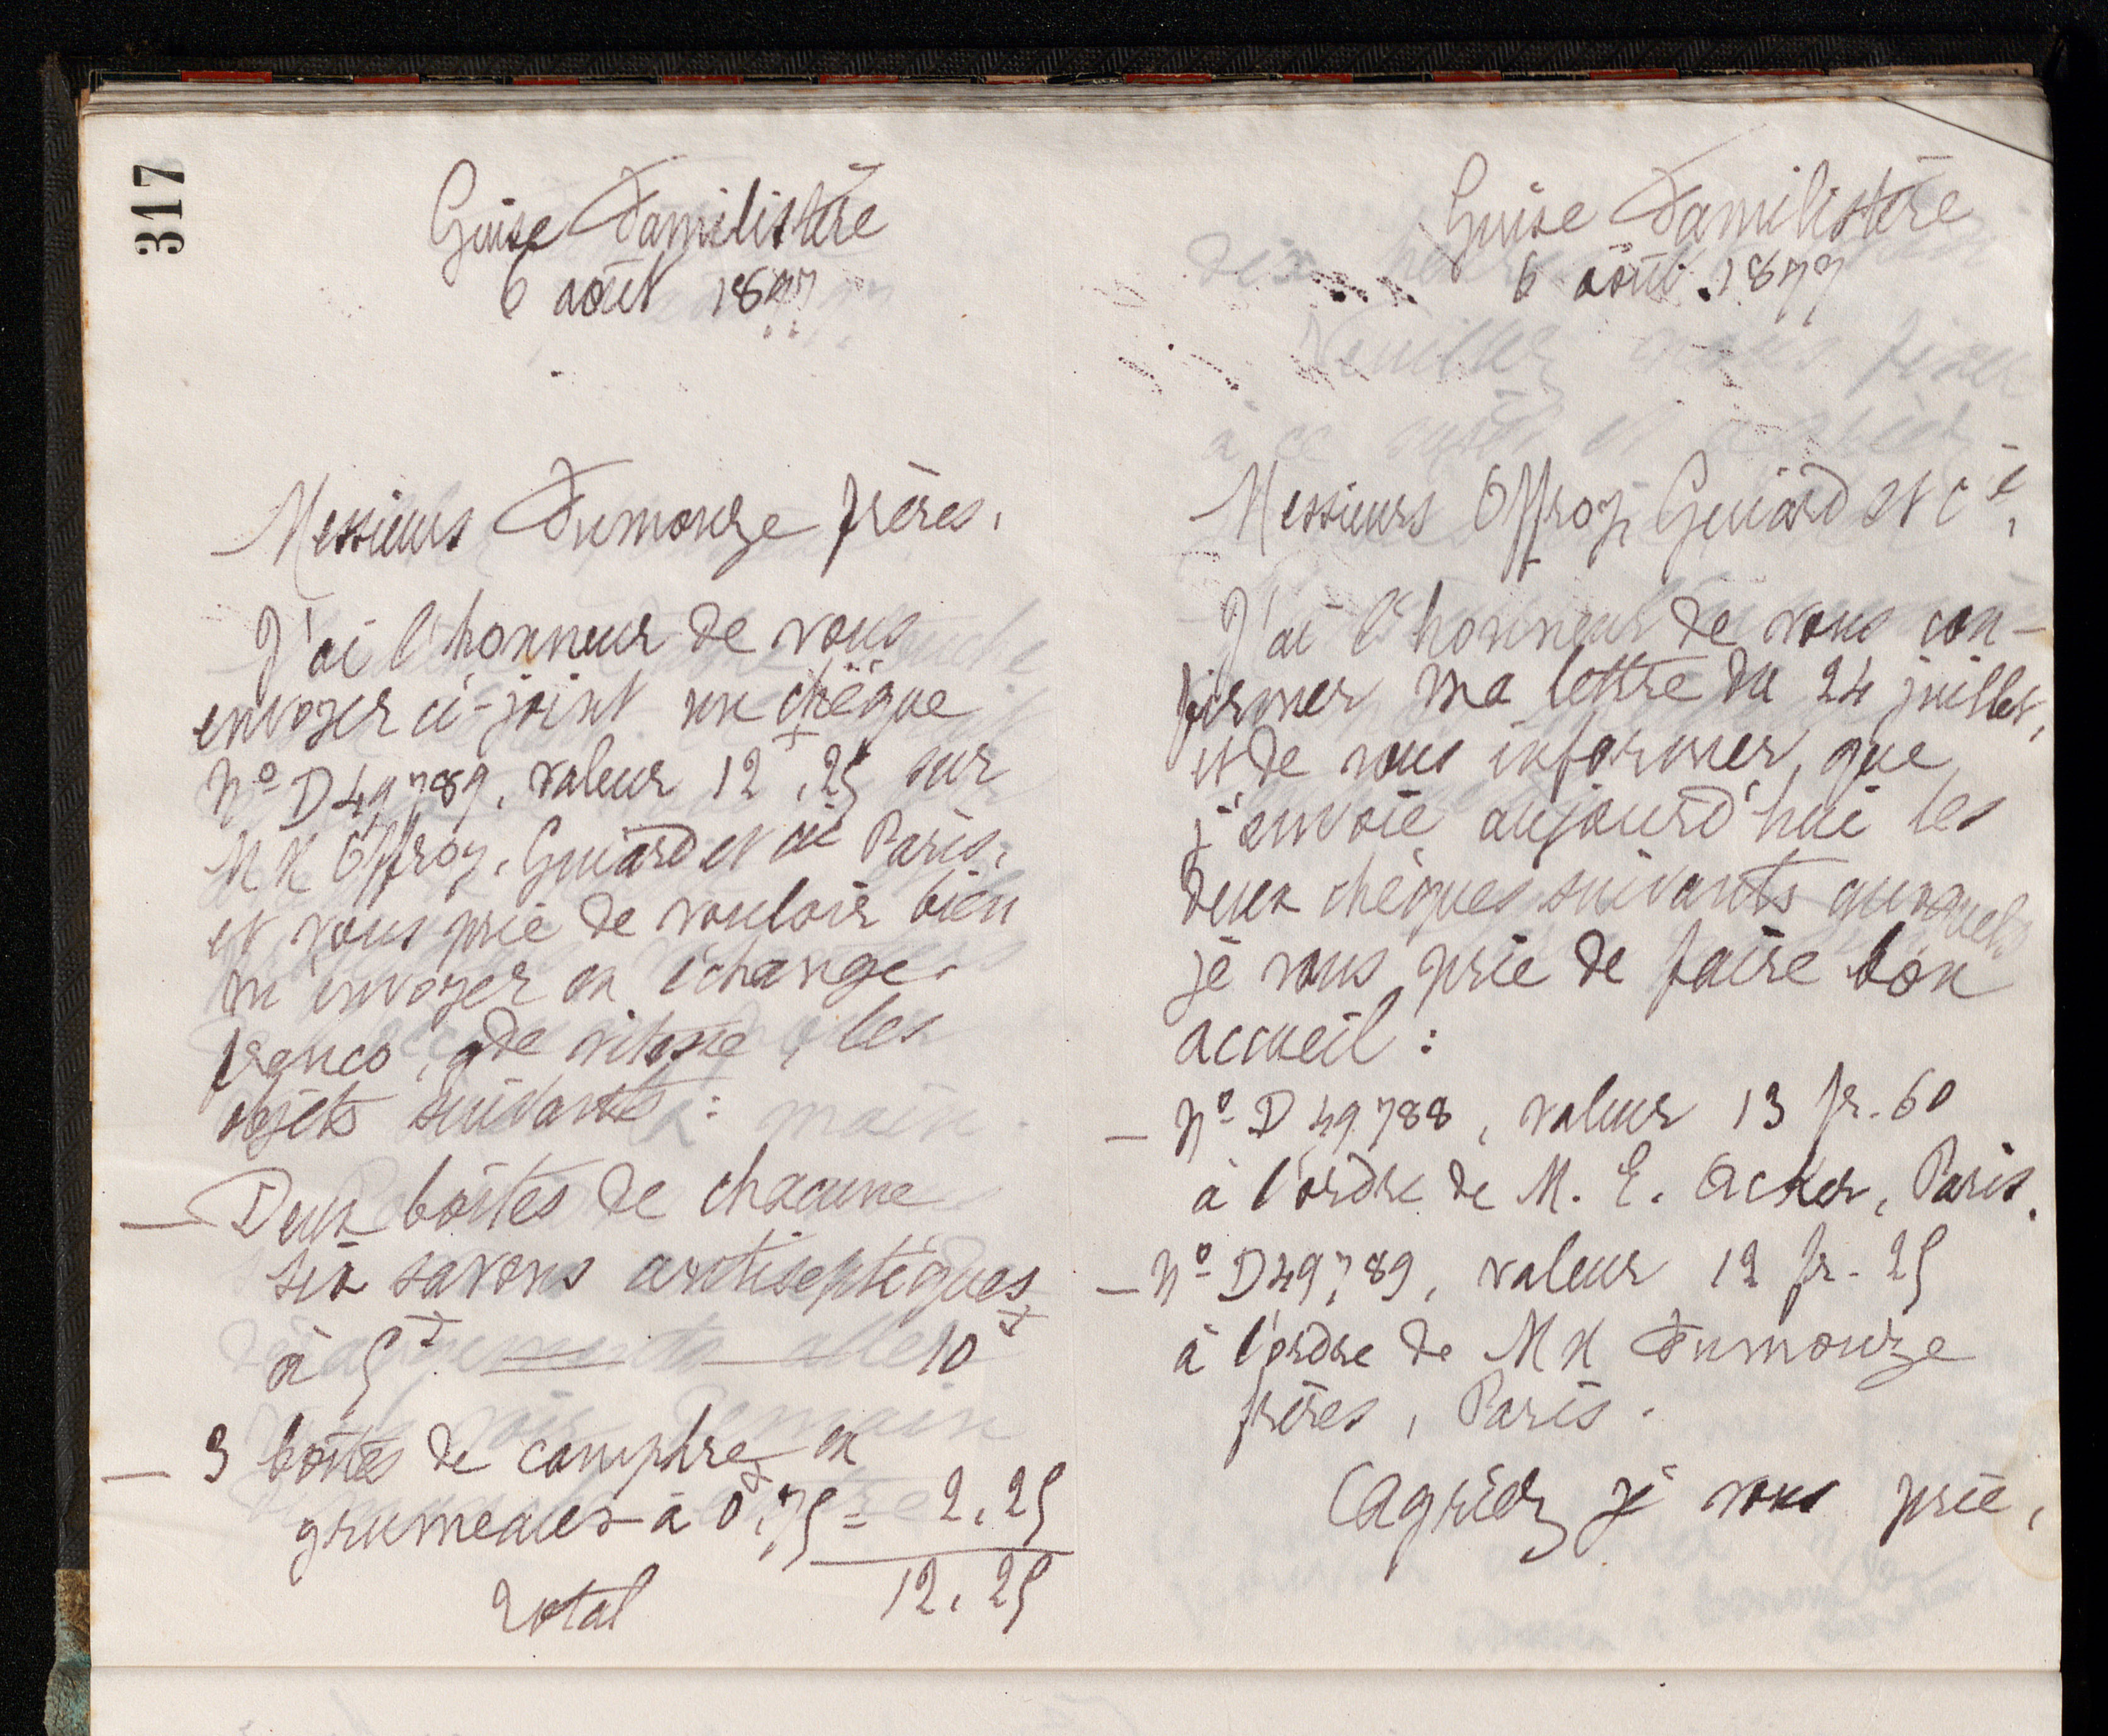 317
Guise Familistère
6 août 1897
Messieurs Fumouze frères,
J'ai l'honneur de vous
envoyer ci-joint un chèque
No D 49789, valeur 12f,25 sur
MM Offroy, Guiard et Cie Paris,
et vous prie de vouloir bien
m'envoyer en échange,
franco, gde vitesse, les
objets suivants :
— Deux boîtes de chacune
six savons antiseptiques
à 5f — — 10f
— 3 boîtes de camphre en
grumeaux à 0f,75 = 2,25
Total 12,25
Guise Familistère
6 août 1897
Messieurs Offroy, Guiard et Cie,
J'ai l'honneur de vous con-
firmer ma lettre du 24 juillet,
et de vous informer que
j'envoie aujourd'hui les
deux chèques suivants auxquels
je vous prie de faire bon
accueil :
— No D 49788, valeur 13 fr. 60
à l'ordre de M. E. Acker, Paris.
— No D 49789, valeur 12 fr. 25
à l'ordre de MM Fumouze
frères, Paris.
Agréez je vous prie,